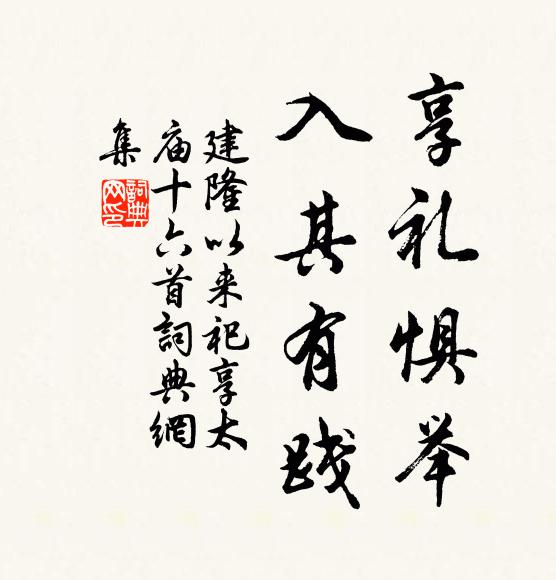 享礼惧举
入其有践
建隆以来祀享太
庙十六首詞典網
集
詞典
网印